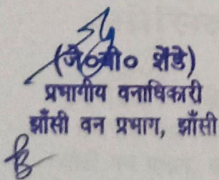 (जे०बी० शेंडे)
प्रभागीय वनाधिकारी
झाँसी वन प्रभाग, झाँसी